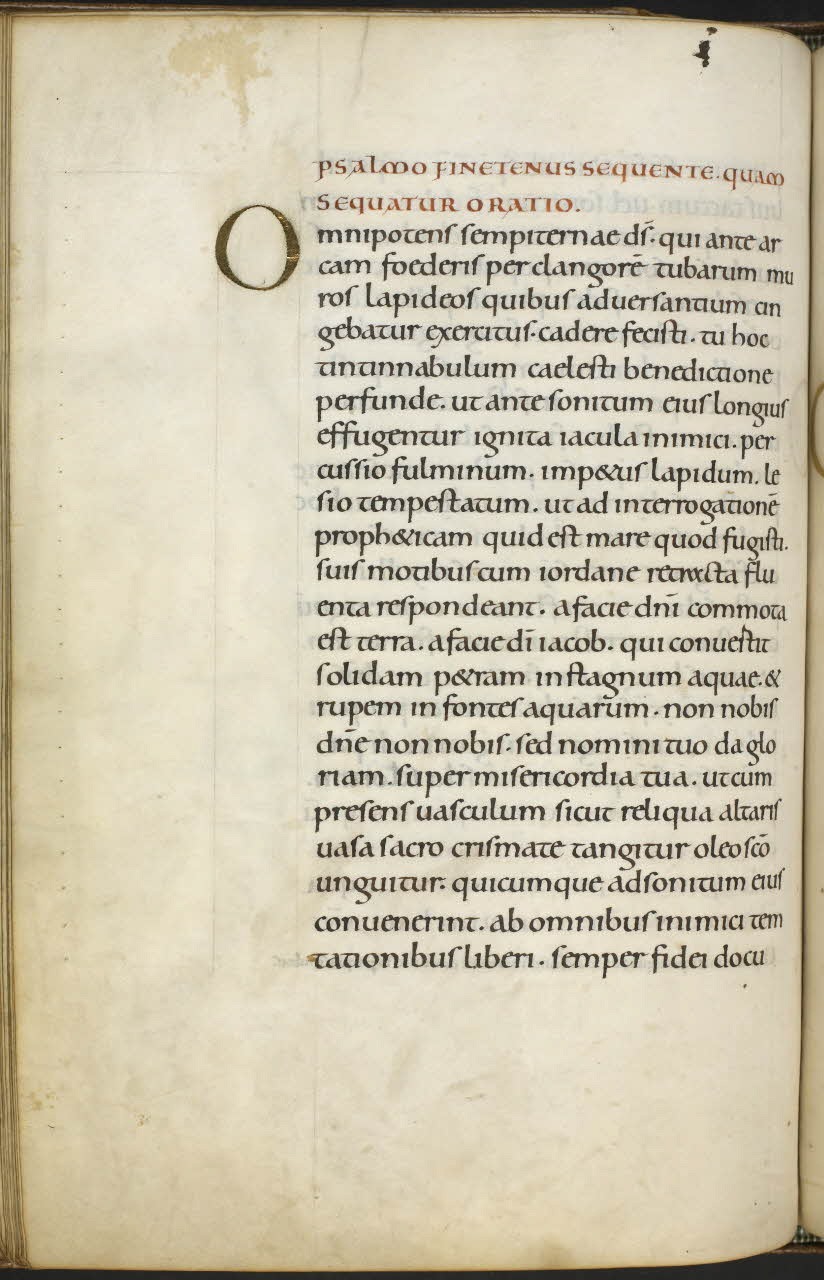 PSALMO FINETENUS SEQUENTE. QUAM
SEQUATUR ORATIO.
Omnipotens sempiternae d̄s. qui ante ar
cam foederis per clangorē tubarum mu
ros lapideos quibus aduersantium cin
gebatur exercitus. cadere fecisti. tu hoc
tintinnabulum caelesti benedictione
perfunde. ut ante sonitum eius longius
effugentur ignita iacula inimici. per
cussio fulminum. imp&us lapidum. le
sio tempestatum. ut ad interrogationē
proph&icam quid est mare quod fugisti.
suis motibus cum iordane retracta flu
enta respondeant. a facie dn̄i commota
est terra. a facie dī iacob. qui conuertit
solidam p&ram in stagnum aquae. &
rupem in fontes aquarum. non nobis
dn̄e non nobis. sed nomini tuo da glo
riam. super misericordia tua. ut cum
presens uasculum sicut reliqua altaris
uasa sacro crismate tangitur oleo scō
unguitur. quicumque ad sonitum eius
conuenerint. ab omnibus inimici tem
tationibus liberi. semper fidei docu